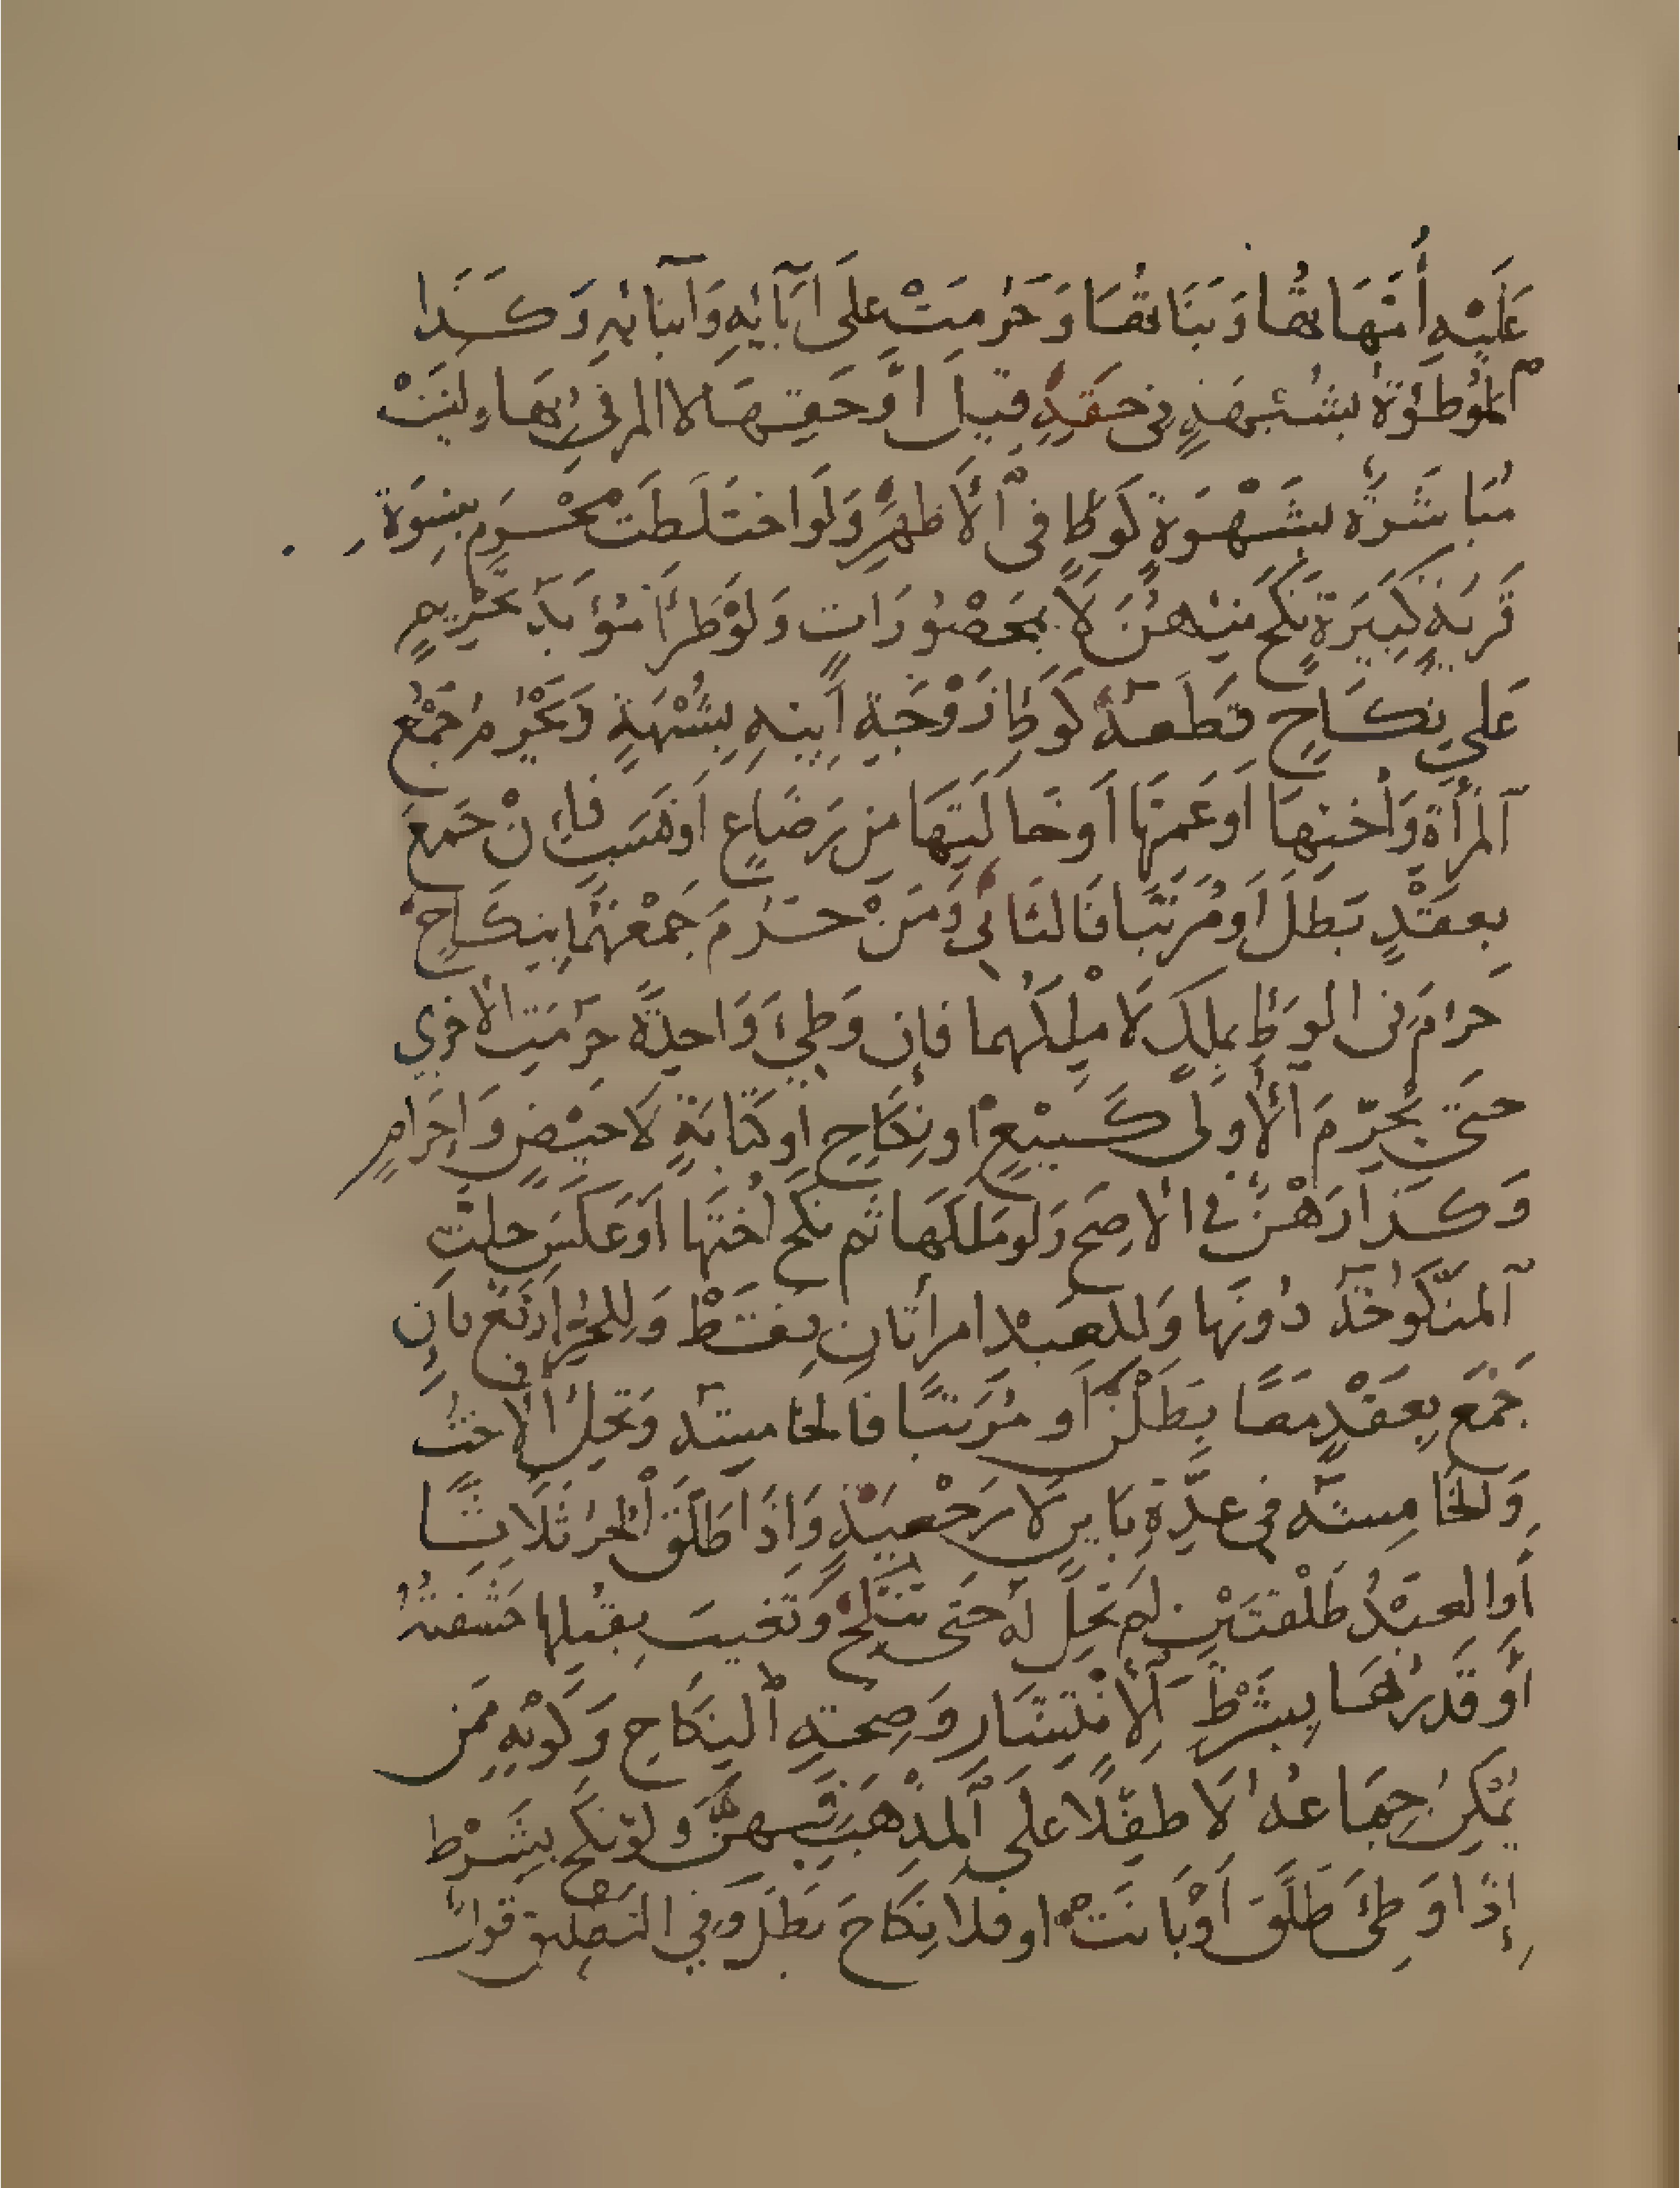 عَلَيْهِ أُمَّهَاتُهَا وَبَنَاتُهَا وَحَرُمَتْ عَلَى آبَائِهِ وَأَبْنَائِهِ وَكَذَا
الْمَوْطُوْءَةُ بِشُبْهَةٍ فِي حَقِّهِ قِيلَ أَوْ حَقِّهَا لَا المزنيُّ بِهَا وَلَيْسَتْ
مُبَاشَرَةٌ بِشَهْوَةٍ كَوَطْءٍ فِي الْأَظْهَرِ وَلَوِ اخْتَلَطَتْ مَحْرَمٌ بِنِسْوَةِ
قَرْيَةٍ كَبِيرَةٍ نَكَحَ مِنْهُنَّ لَا بِمَحْصُورَاتٍ وَلَوْ طَرَأَ مُؤَبَّدُ تَحْرِيمٍ
عَلَى نِكَاحٍ قَطَعَهُ كَوَطْءِ زَوْجَةِ ابْنِهِ بِشُبْهَةٍ وَيَحْرُمُ جَمْعُ
الْمَرْأَةِ وَأُخْتِهَا أَوْ عَمَّتِهَا أَوْ خَالَتِهَا مِنْ رَضَاعٍ أَوْ نَسَبٍ فَإِنْ جَمَعَ
بِعَقْدٍ بَطَلَ أَوْ مُرَتَّبًا فَالثَّانِي وَمَنْ حَرُمَ جَمْعُهُمَا بِنِكَاحٍ
حَرُمَ فِي الْوَطْءِ بِمِلْكٍ لَا مِلْكُهُمَا فَإِنْ وَطِئَ وَاحِدَةً حَرُمَتِ الْأُخْرَى
حَتَّى يُحَرِّمَ الْأُولَى كَبَيْعٍ أَوْ نِكَاحٍ أَوْ كِتَابَةٍ لَا حَيْضٍ وَإِحْرَامٍ
وَكَذَا رَهْنٌ فِي الْأَصَحِّ وَلَوْ مَلَكَهَا ثُمَّ نَكَحَ أُخْتَهَا أَوْ عَكَسَ حَلَّتِ
الْمَنْكُوحَةُ دُونَهَا وَلِلْعَبْدِ امْرَأَتَانِ فَقَطْ وَلِلْحُرِّ أَرْبَعٌ فَإِنْ
جَمَعَ بِعَقْدٍ مَعًا بَطَلْنَ أَوْ مُرَتَّبًا فَالْخَامِسَةُ وَتَحِلُّ الْأُخْتُ
وَالْخَامِسَةُ فِي عِدَّةِ بَائِنٍ لَا رَجْعِيَّةٍ وَإِذَا طَلَّقَ الْحُرُّ ثَلَاثًا
أَوِ الْعَبْدُ طَلْقَتَيْنِ لَمْ تَحِلَّ لَهُ حَتَّى تَنْكِحَ وَتَغِيبَ بِقُبُلِهَا حَشَفَتُهُ
أَوْ قَدْرُهَا بِشَرْطِ الْاِنْتِشَارِ وَصِحَّةِ النِّكَاحِ وَكَوْنِهِ مِمَّنْ
يُمْكِنُ جِمَاعُهُ لَا طِفْلًا عَلَى الْمَذْهَبِ فِيهِنَّ وَلَوْ نَكَحَ بِشَرْطِ
إِذَا وَطِئَ طَلَّقَ أَوْ بَانَتْ أَوْ فَلَا نِكَاحَ بَطَلَ وَفِي التَّطْلِيقِ قَوْلٌ